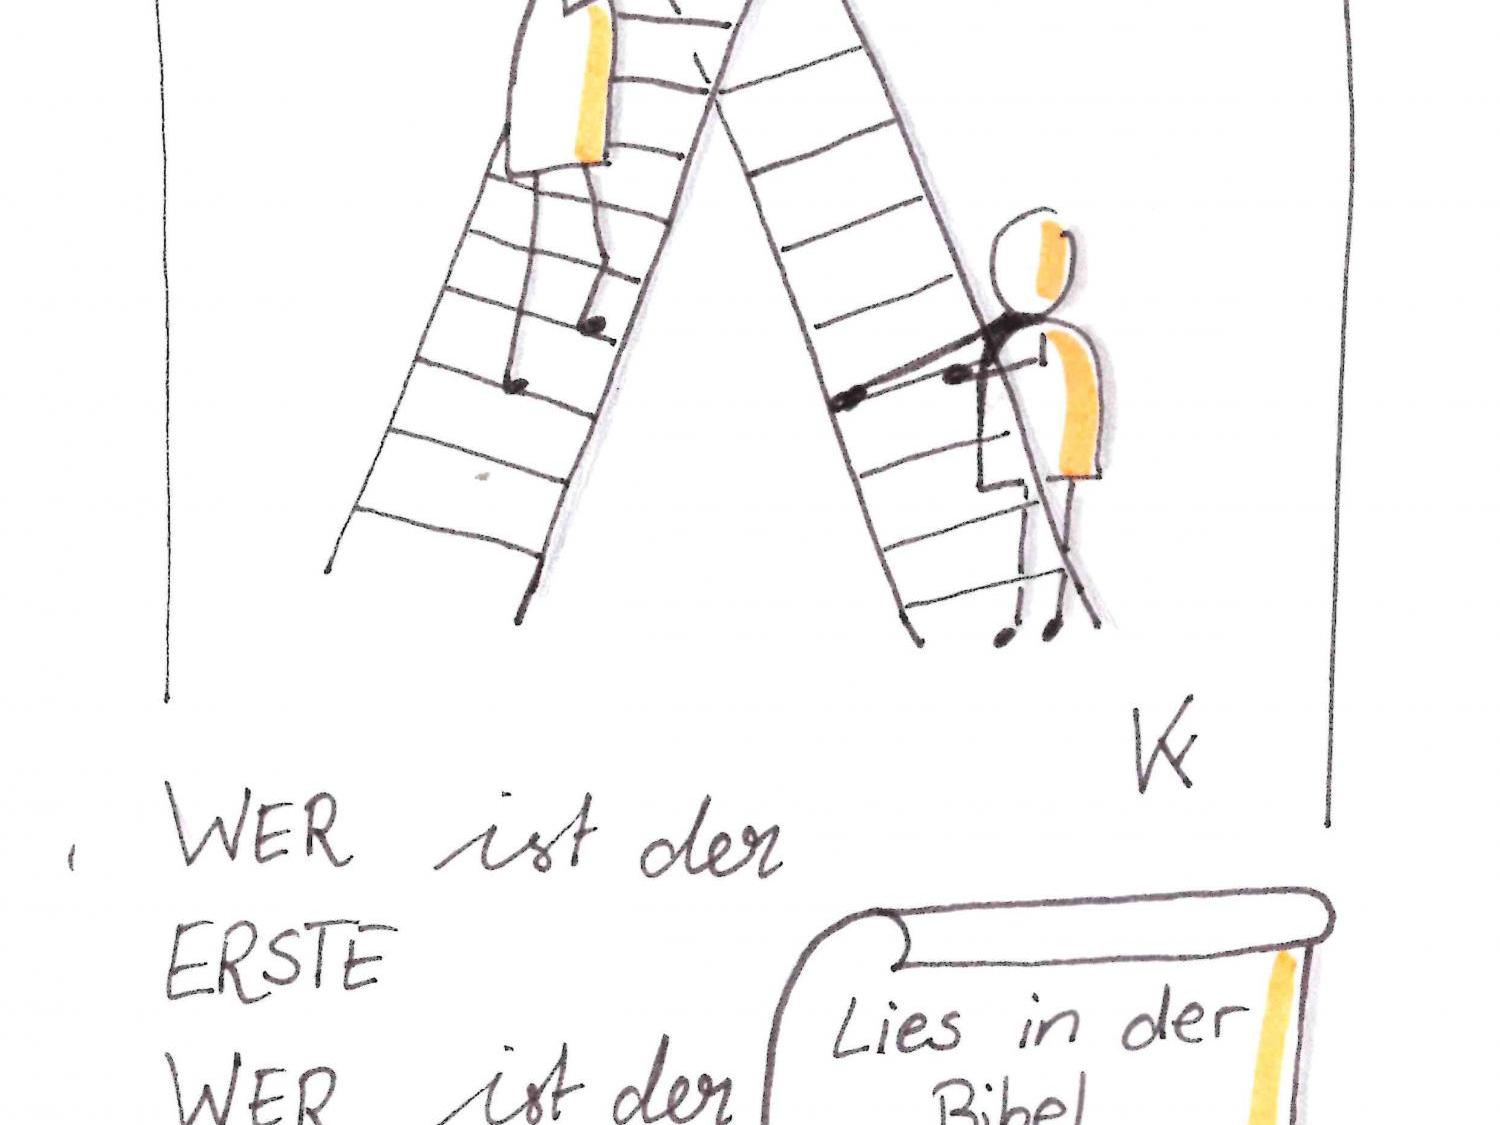 WER ist der
ERSTE
WER ist der
Lies in der
Bibel